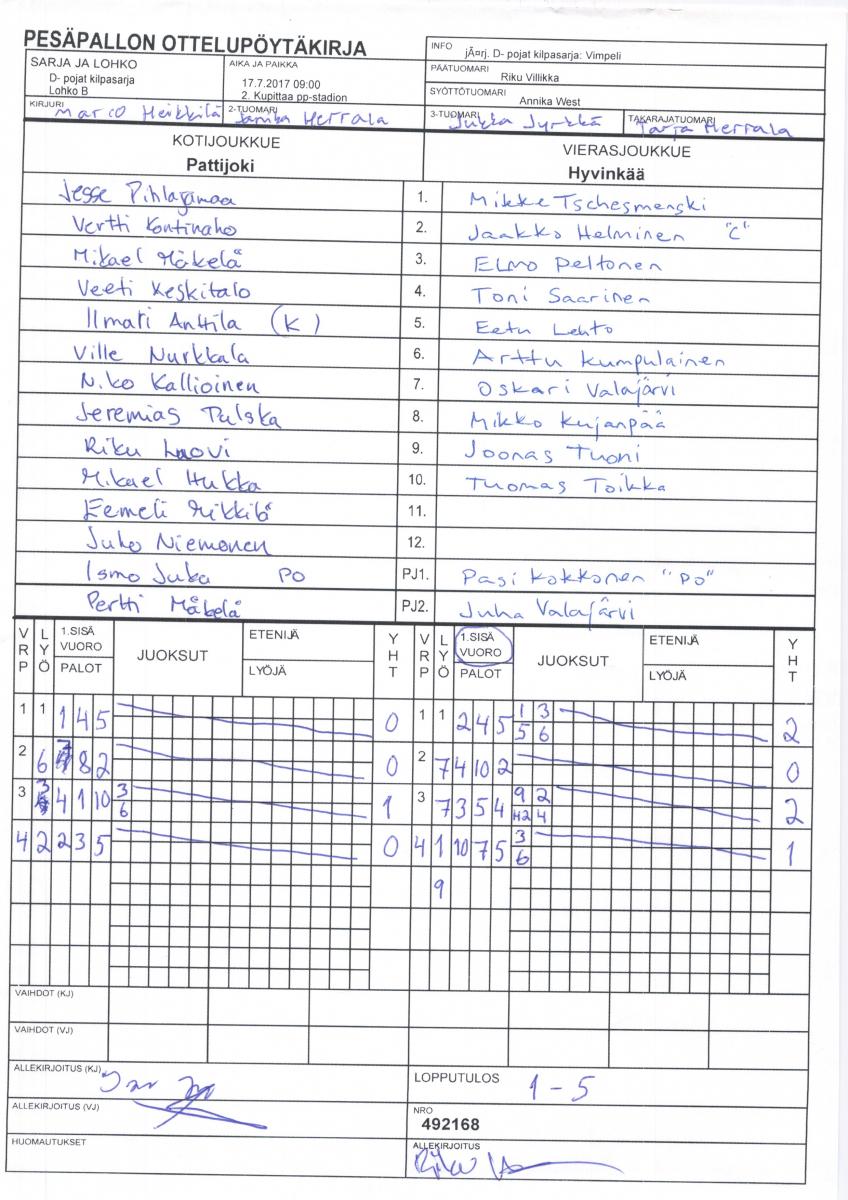 PESÄPALLON OTTELUPÖYTÄKIRJA
INFO jÃ¤rj. D- pojat kilpasarja: Vimpeli
SARJA JA LOHKO
D- pojat kilpasarja
Lohko B
AIKA JA PAIKKA
17.7.2017 09:00
2. Kupittaa pp-stadion
PÄÄTUOMARI Riku Villikka
SYÖTTÖTUOMARI Annika West
KIRJURI Marco Heikkilä
2-TUOMARI Herrala
3-TUOMARI Jukka Jyrkkä
TAKARAJATUOMARI Tarja Herrala
KOTIJOUKKUE
Pattijoki
VIERASJOUKKUE
Hyvinkää
Jesse Pihlajamaa 1. Mikke Tschesmenski
Vertti Kontinaho 2. Jaakko Helminen "C"
Mikael Mäkelä 3. Elmo Peltonen
Veeti Keskitalo 4. Toni Saarinen
Ilmari Anttila (K) 5. Eetu Lehto
Ville Nurkkala 6. Arttu Kumpulainen
Niko Kallioinen 7. Oskari Valajärvi
Jeremias Pulska 8. Mikko Kujanpää
Riku 9. Joonas Tuoni
Mikael Hukka 10. Tuomas Toikka
Eemeli 11.
Juho Niemonen 12.
Ismo Juka PO PJ1. Pasi Kokkonen "PO"
Pertti Mäkelä PJ2. Juha Valajärvi
VRP LYÖ 1.SISÄ VUORO PALOT JUOKSUT ETENIJÄ LYÖJÄ YHT VRP LYÖ 1.SISÄ VUORO PALOT JUOKSUT ETENIJÄ LYÖJÄ YHT
1 1 1 4 5 0 1 1 2 4 5 1 3 5 6 2
2 6 7 8 2 0 2 7 4 10 2 0
3 3 4 1 10 3 6 1 3 7 3 5 4 9 2 4 2
4 2 2 3 5 0 4 1 10 7 5 3 6 1
9
VAIHDOT (KJ)
VAIHDOT (VJ)
ALLEKIRJOITUS (KJ)
LOPPUTULOS 1 - 5
ALLEKIRJOITUS (VJ)
NRO
492168
HUOMAUTUKSET
ALLEKIRJOITUS